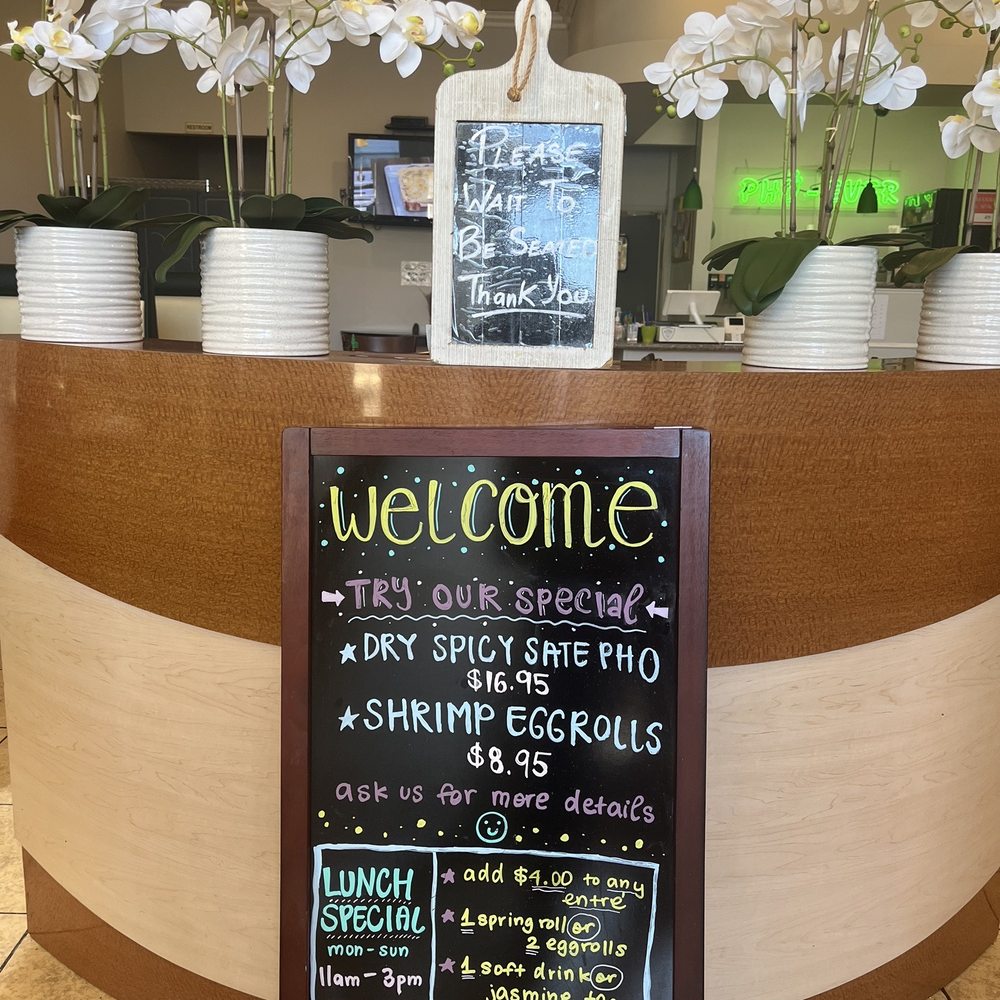 RESTROOM
PLEASE
WAIT TO
BE SEATED
Thank You
welcome
TRY OUR special
DRY SPICY SATE PHO
$16.95
SHRIMP EGGROLLS
$8.95
ask us for more details
LUNCH
SPECIAL
mon-sun
11am-3pm
add $4.00 to any
entre
1 spring roll or
2 eggrolls
1 soft drink or
jasmine